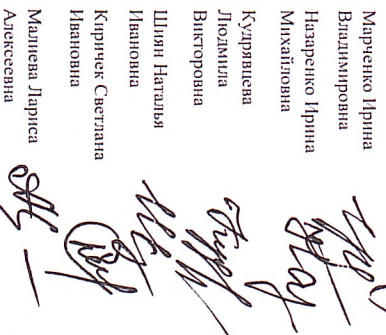 Марченко Ирина
Владимировна
Назаренко Ирина
Михайловна
Кудрявцева
Людмила
Викторовна
Шиян Наталья
Ивановна
Киричек Светлана
Ивановна
Малиева Лариса
Алексеевна